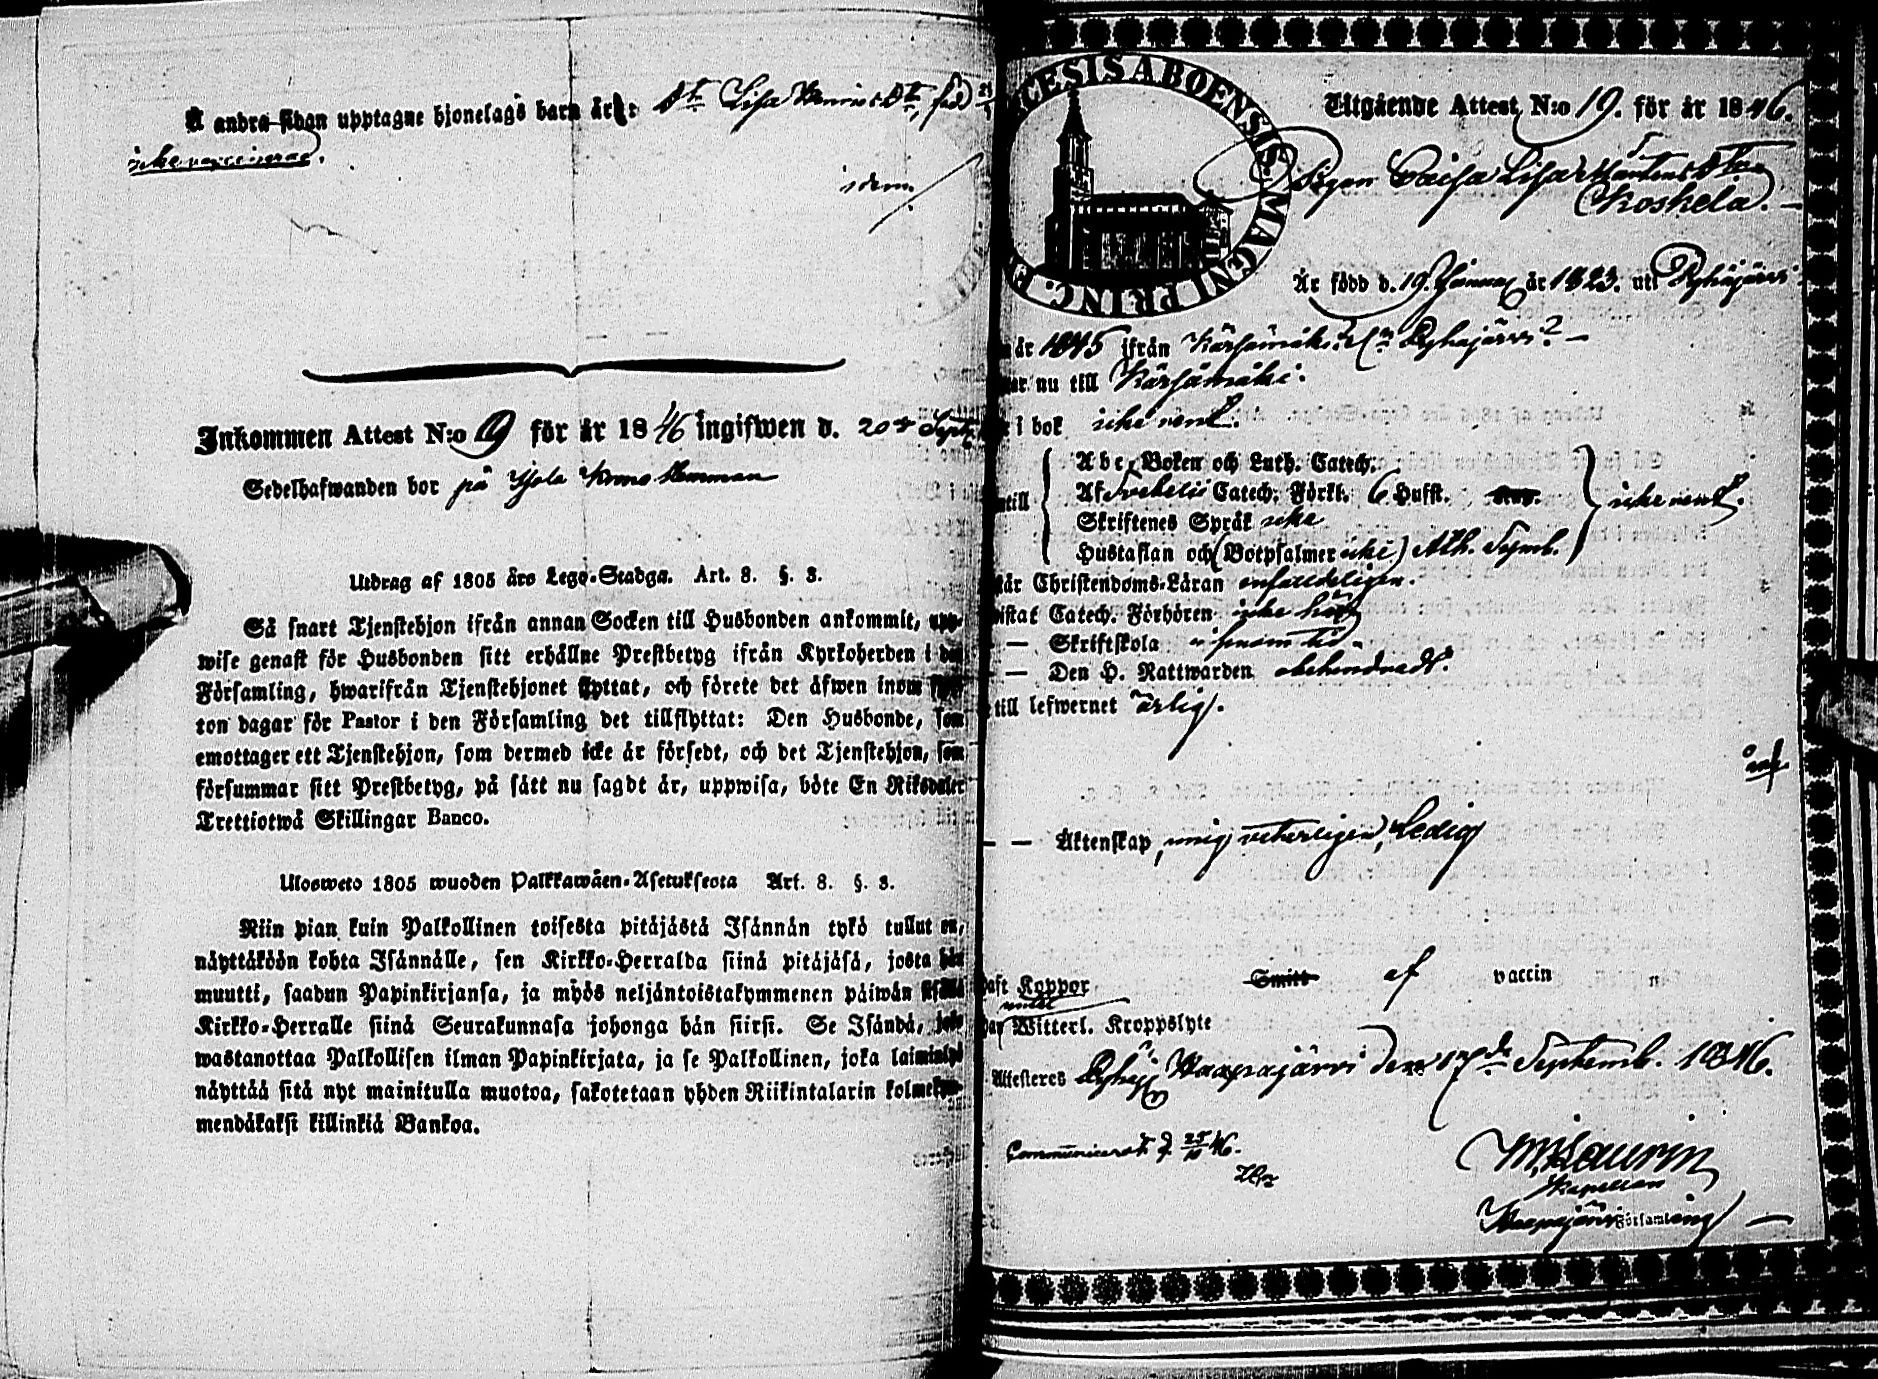 Å andra sidan upptagne hjonelags barn är: Dr Lisa
icke vaccinerad.
idem.
Inkommen Attest N:o 19 för år 1846 ingifwen d. 20de Sept.
Sedelhafwanden bor på
Utdrag af 1805 års Lego-Stadga. Art. 8. §. 3.
Så snart Tjenstehjon ifrån annan Socken till Husbonden ankommit, upp-
wise genast för Husbonden sitt erhållne Prestbetyg ifrån Kyrkoherden i den
Församling, hwarifrån Tjenstehjonet flyttat, och förete det äfwen inom fjor-
ton dagar för Pastor i den Församling det tillflyttat: Den Husbonde, som
emottager ett Tjenstehjon, som dermed icke är försedt, och det Tjenstehjon, som
försummar sitt Prestbetyg, på sätt nu sagdt är, uppwisa, böte En Riksdaler
Trettiotwå Skillingar Banco.
Ulosweto 1805 wuoden Palkkawäen-Asetuksesta Art. 8. §. 3.
Niin pian kuin Palkollinen toisesta pitäjästä Isännän tykö tullut on,
näyttäköön kohta Isännälle, sen Kirkko-Herralda siinä pitäjäsä, josta hän
muutti, saadun Papinkirjansa, ja myös neljäntoistakymmenen päiwän sisällä
Kirkko-Herralle siinä Seurakunnasa johonga hän siirsi. Se Isändä, joka
wastanottaa Palkollisen ilman Papinkirjata, ja se Palkollinen, joka laiminlyö
näyttää sitä nyt mainitulla muotoa, sakotetaan yhden Riikintalarin kolmekym-
mendäkaksi killinkiä Bankoa.
CESIS ABOENSIS MAGNI PRINC. F
Utgående Attest N:o 19. för år 1846.
Pigan Caisa Lisa Mårtensdtr
Koskela.
Är född d. 19. Januar år 1823. uti Pyhäjärvi
år 1845 ifrån Kärsämäki? Pyhajärvi?
nu till Kärsämäki.
i bok icke venl.
Abc-Boken och Luth. Catech.
Af Svebelii Catech. Förkl. 6 Hufst.
till icke venl.
Skriftenes Språk icke
Hustaflan och (Botpsalmer icke) Ath. Symb.
Christendoms-Läran enfaldeligen.
Catech. Förhören icke här
— Skriftskola i sinom tid
— Den H. Nattwarden obehindradt.
till lefwernet ärlig.
— — Äktenskap, mig veterligen, Ledig
haft Koppor Smitt af vaccin
Witterl. Kroppslyte
Attesteres Pyhäj. Haapajärvi den 17de Septemb. 1846.
Communicerat d. 25/10 46.
Kapellan
Haapajärvi Församling